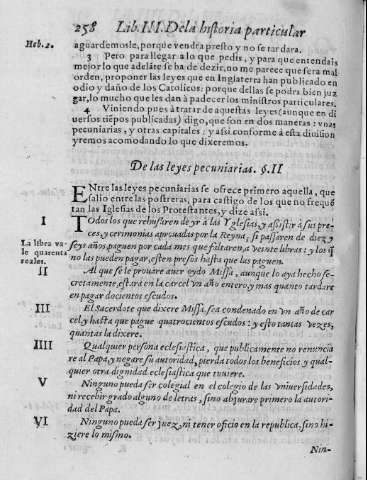 258 Lib. III. De la historia particular
Heb. 2. aguardemosle, porque vendra presto y no se tardara.
3 Pero para llegar a lo que pedis, y para que entendais
mejor lo que adeláte se ha de dezir, no me parece que sera mal
orden, proponer las leyes que en Inglaterra han publicado en
odio y daño de los Catolicos: porque dellas se podra bien juz
gar, lo mucho que les dan à padecer los ministros particulares.
4 Viniendo pues à tratar de aquestas leyes (aunque en di
uersos tiépos publicadas) digo, que son en dos maneras: vnas
pecuniarias, y otras capitales: y assi conforme à esta diuision
yremos acomodando lo que dixeremos.
De las leyes pecuniarias. §. II
ENtre las leyes pecuniarias se ofrece primero aquella, que
salio entre las postreras, para castigo de los que no frequē
tan las Iglesias de los Protestantes, y dize assi.
I Todos los que rehusaren de yr à las Yglesias, y assistir à sus pre-
ces, y cerimonias aprouadas por la Reyna; si passaren de diez y
La libra va
le quarenta
reales.
seys años, paguen por cada mes que faltaren, a veinte libras: y los q̃
no las pueden pagar, esten presos hasta que las paguen.
II Al que se prouare auer oydo Missa, aunque lo aya hecho se-
cretamente, estarà en la carcel vn año entero, y mas quanto tardare
en pagar docientos escudos.
III El Sacerdote que dixere Missa, sea condenado en vn año de car
cel, y hasta que pague quatrocientos escudos: y esto tantas vezes,
quantas la dixere.
IIII Qualquier persona eclesiastica, que publicamente no renuncia
re al Papa, y negare su autoridad, pierda todos los beneficios, y qual-
quier otra dignidad eclesiastica que tuuiere.
V Ninguno pueda ser colegial en el colegio de las vniuersidades,
ni recebir grado alguno de letras, sino abjurare primero la autori-
dad del Papa.
VI Ninguno pueda ser juez, ni tener oficio en la republica, sino hi-
ziere lo mismo.
Nin-